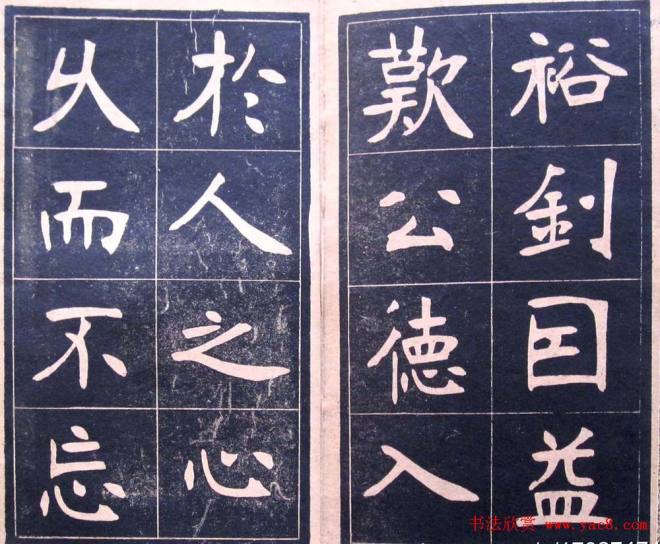 裕釗囙益
歎公德入
於人之心
久而不忘
书法欣赏 www.yac8.com